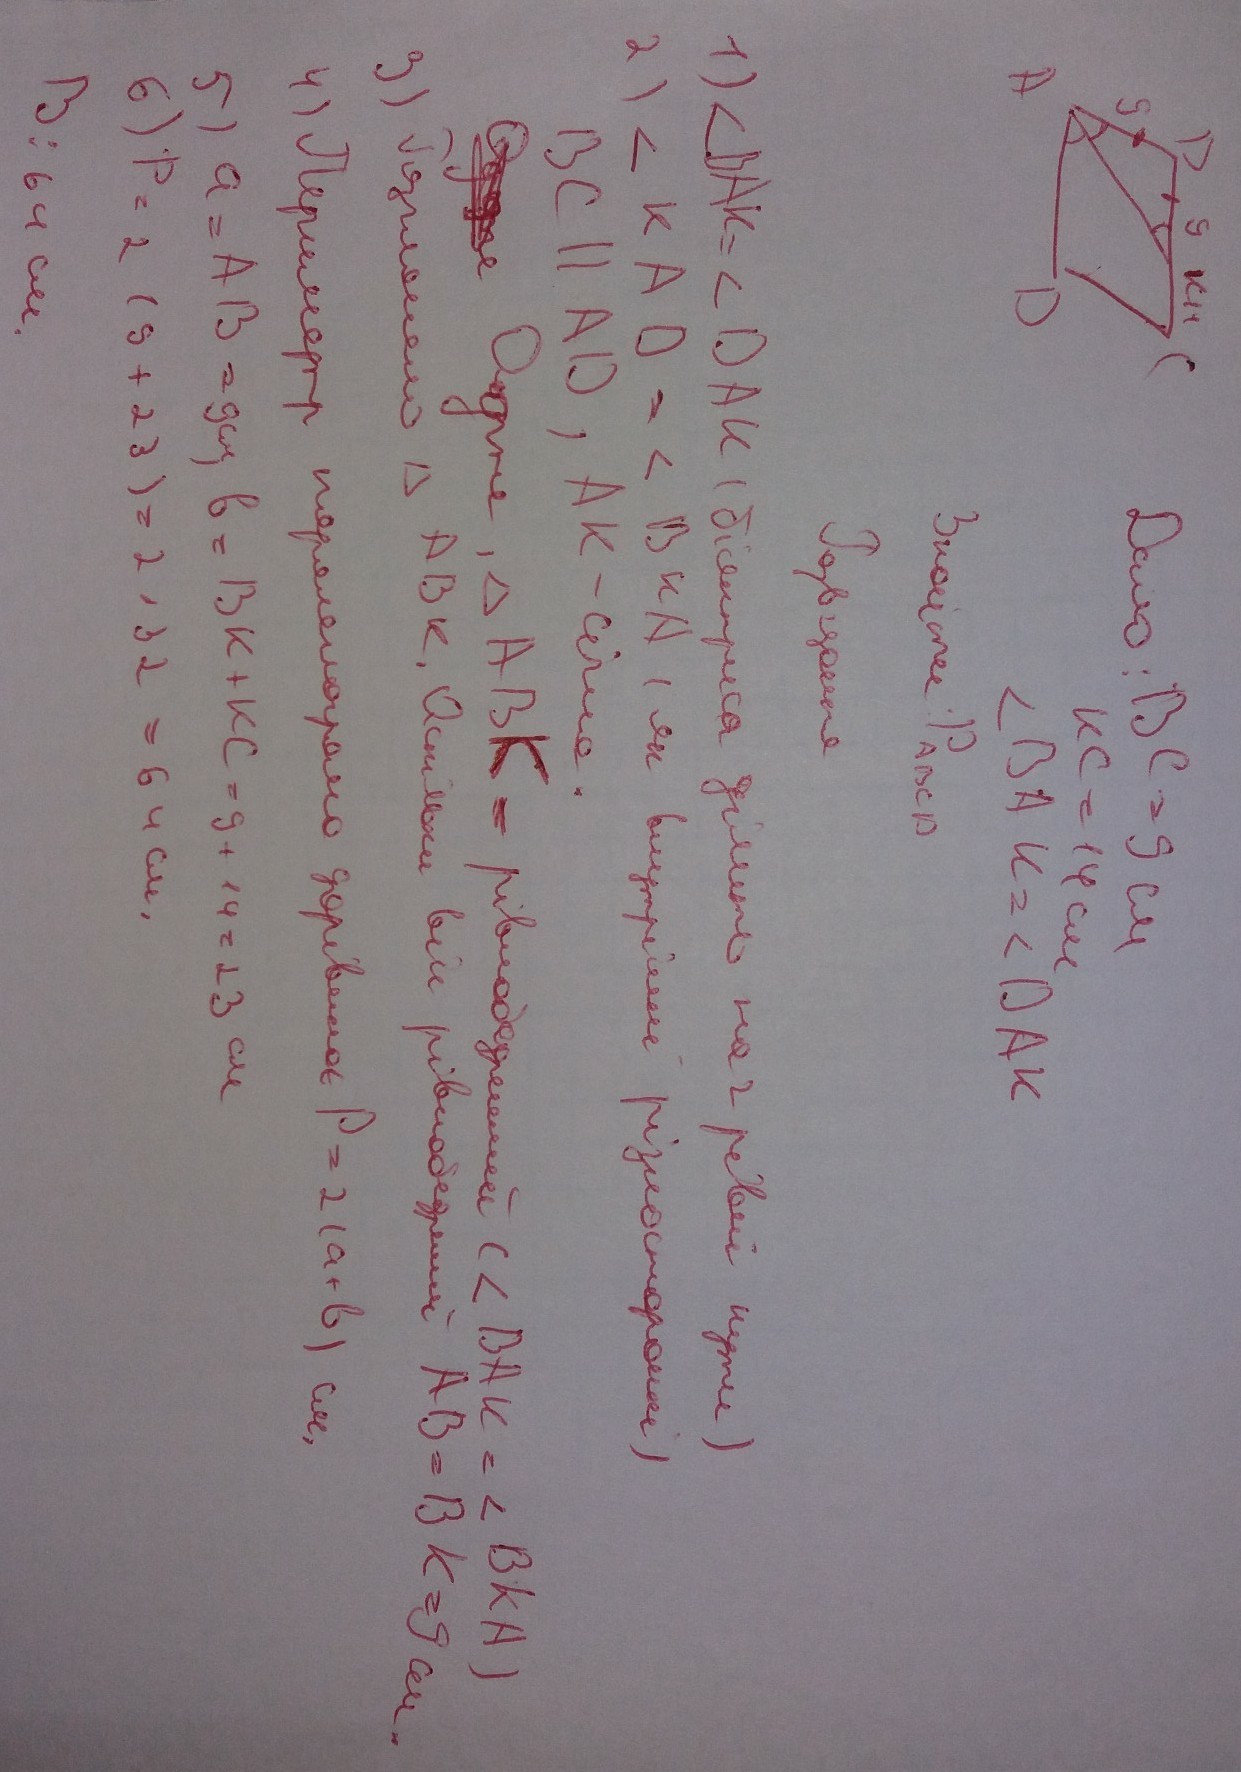 A
9
B
9
K
14
C
D
Дано: BC = 9 см
KC = 14 см
<BAK = < DAK
Знайти: P ABCD
Розв'язання
1) <BAK = < DAK (бісектриса ділить на 2 рівні кути)
2) < KAD = < BKA (як внутрішні різносторонні)
BC || AD, AK - січна.
Отже, △ABK = рівнобедрений (<BAK = <BKA)
3) Розглянемо △ ABK. Оскільки він рівнобедрений AB = BK = 9 см.
4) Периметр паралелограма дорівнює P = 2(a+b) см.
5) a = AB = 9см, b = BK + KC = 9 + 14 = 23 см
6) P = 2 (9 + 23) = 2 · 32 = 64 см.
В: 64 см.